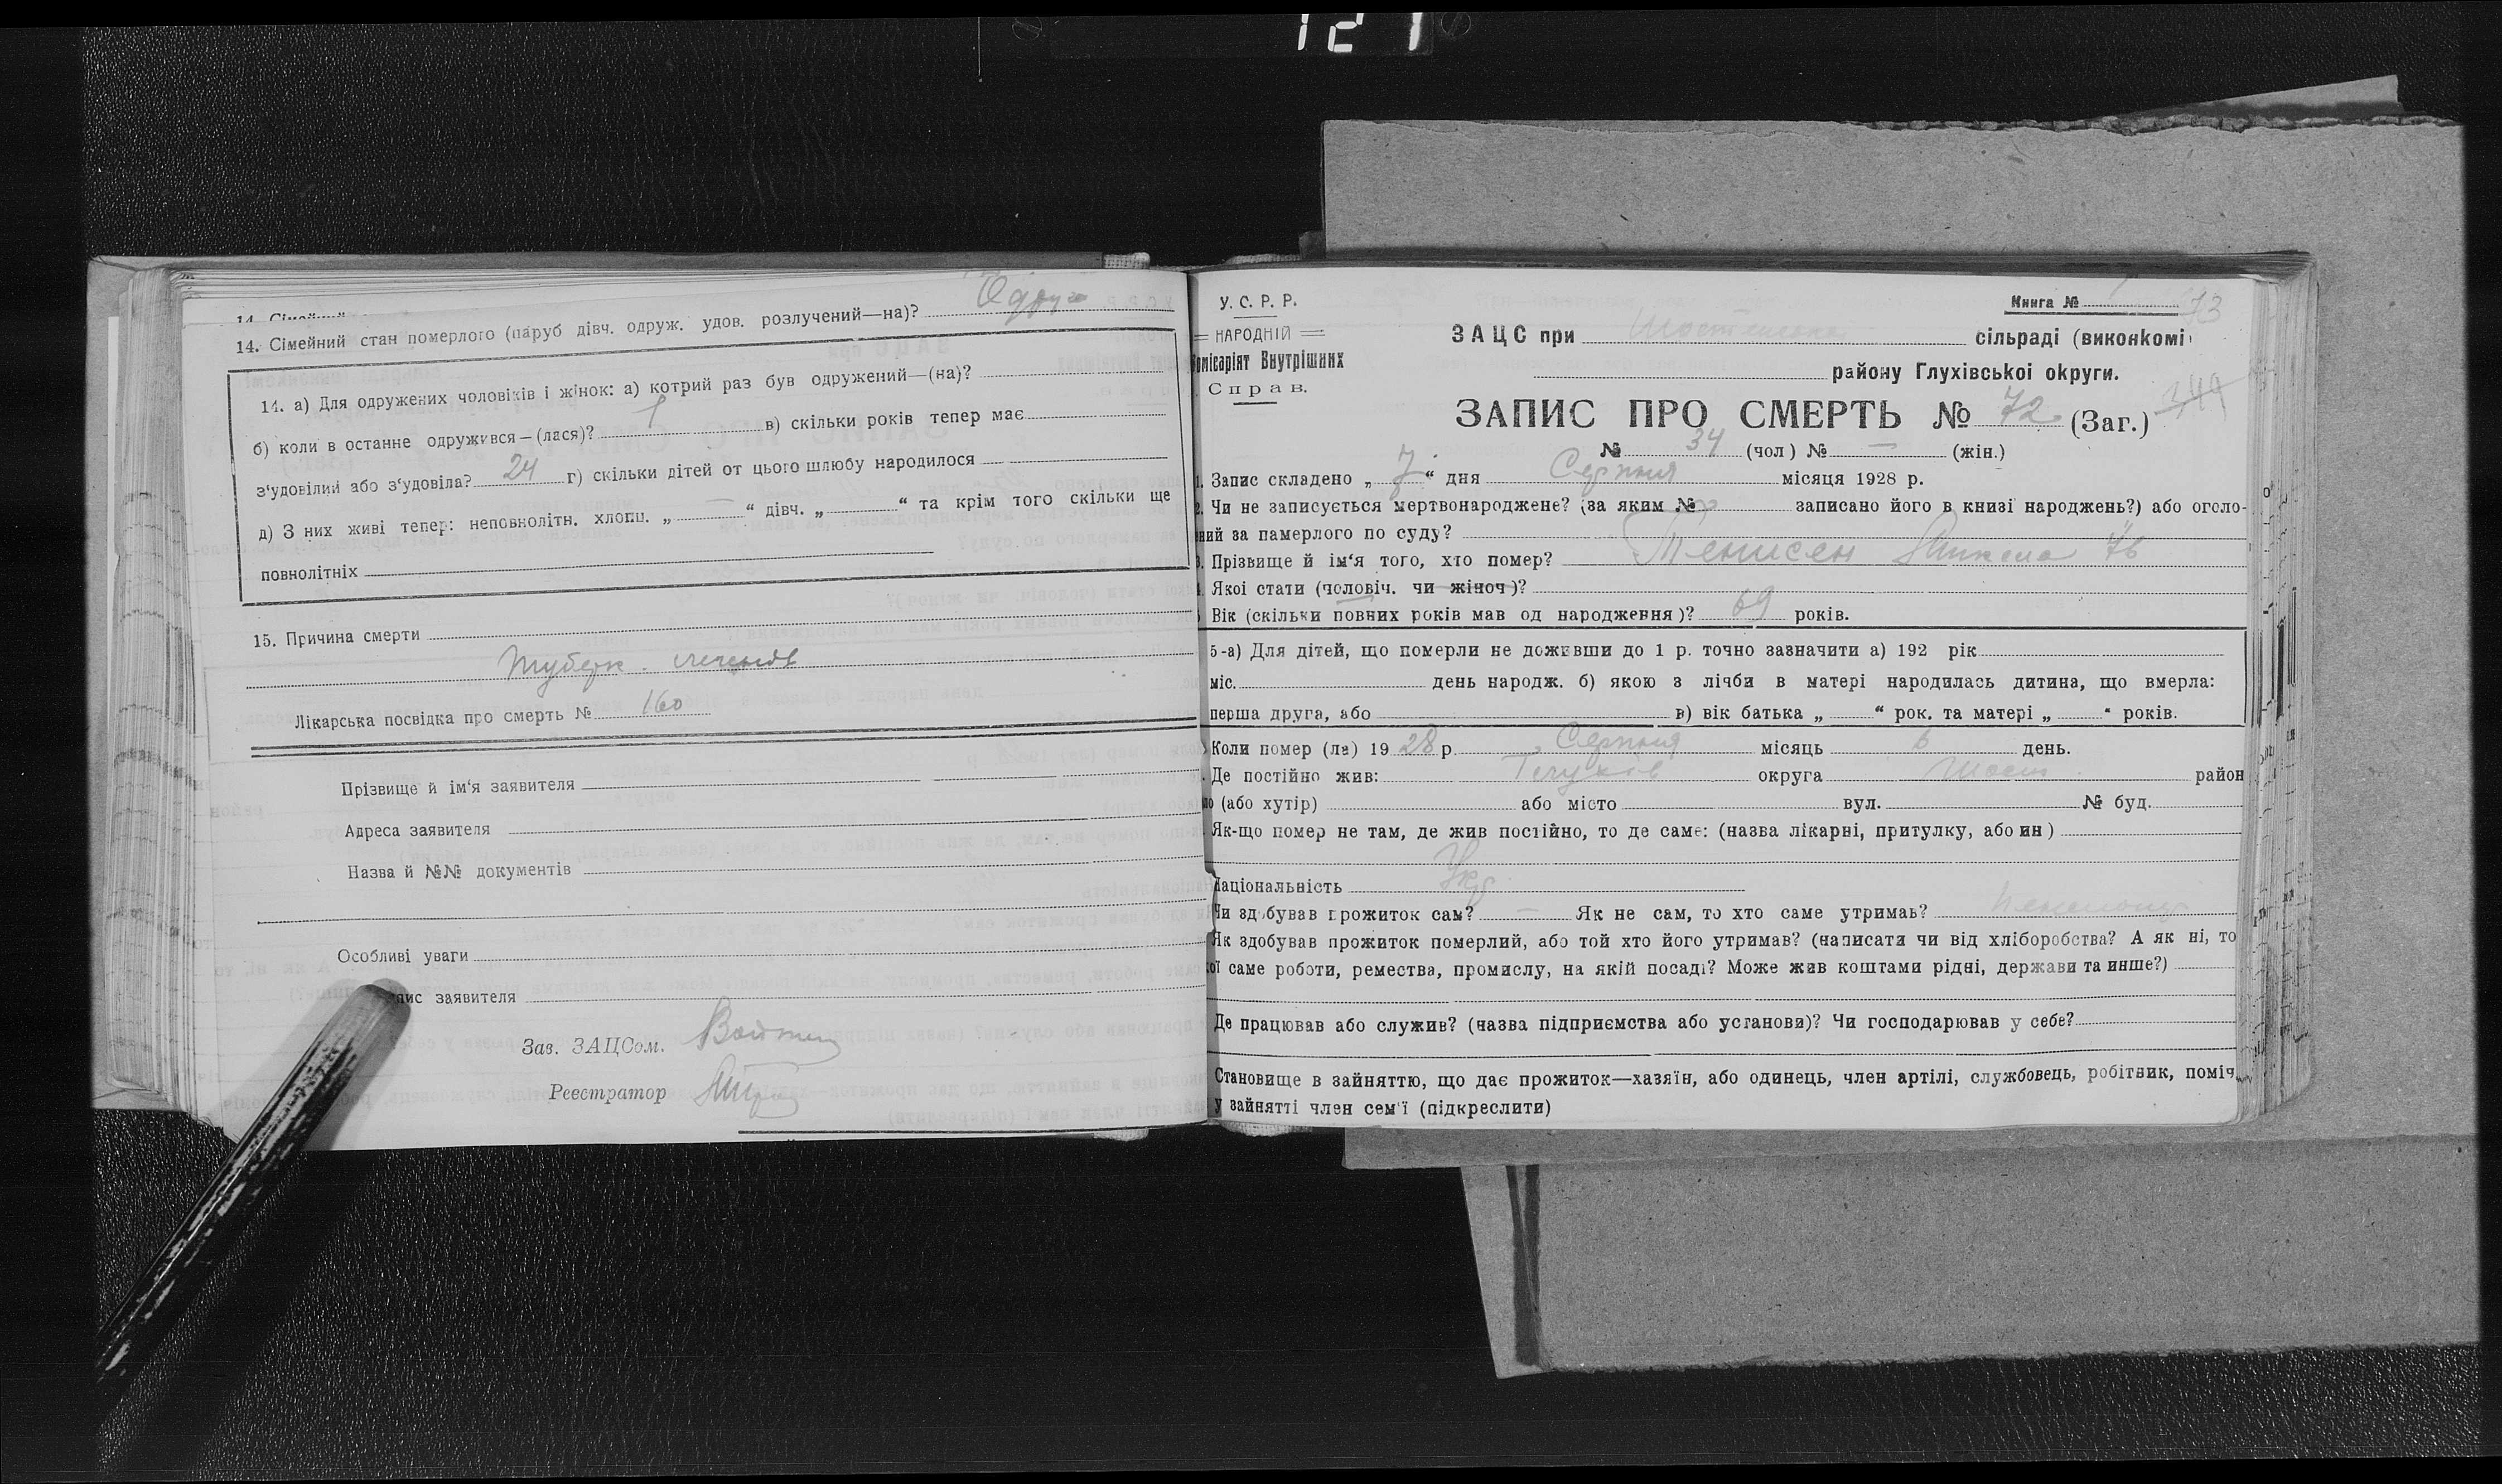 121
14. Сімейний стан померлого (паруб дівч. одруж. удов. розлучений—на)? Одруж
14. а) Для одружених чоловіків і жінок: а) котрий раз був одружений—(на)?
б) коли в останне одружився—(лася)? 1 в) скільки років тепер має
з'удовілий або з'удовіла? 24 г) скільки дітей от цього шлюбу народилося —
д) З них живі тепер: неповнолітн. хлопц. „ — “ дівч. „ “ та крім того скільки ще
повнолітніх
15. Причина смерти
Туберк. легенів
Лікарська посвідка про смерть № 160
Прізвище й ім'я заявителя
Адреса заявителя
Назва й №№ документів
Особливі уваги
пис заявителя
Зав. ЗАЦСом.
Реєстратор
У. С. Р. Р.
НАРОДНІЙ
Комісаріят Внутрішних
Справ.
Книга № 73
ЗАЦС при сільраді (виконкомі
району Глухівської округи.
ЗАПИС ПРО СМЕРТЬ № 72 (Заг.) 344
№ 34 (чол) № — (жін.)
1. Запис складено „ 7 “ дня Серпня місяця 1928 р.
2. Чи не записується мертвонароджене? (за яким № записано його в книзі народжень?) або оголо-
ний за памерлого по суду?
3. Прізвище й ім'я того, хто помер? Микола
Якої стати (чоловіч. чи жіноч)?
Вік (скільки повних років мав од народження)? 69 років.
5-а) Для дітей, що померли не доживши до 1 р. точно зазначити а) 192 рік
міс. день народж. б) якою з лічби в матері народилась дитина, що вмерла:
перша друга, або в) вік батька „ “ рок. та матері „ “ років.
Коли помер (ла) 1928 р. Серпня місяць 6 день.
Де постійно жив: Глухів округа Шост район
(або хутір) або місто вул. № буд.
Як-що помер не там, де жив постійно, то де саме: (назва лікарні, притулку, або ин)
Національність Укр
Чи здобував прожиток сам? — Як не сам, то хто саме утримав?
Як здобував прожиток померлий, або той хто його утримав? (написати чи від хліборобства? А як ні, то
ої саме роботи, ремества, промислу, на якій посаді? Може жив коштами рідні, держави та инше?)
Де працював або служив? (назва підприємства або установи)? Чи господарював у себе?
Становище в зайняттю, що дає прожиток—хазяїн, або одинець, член артілі, службовець, робітвик, поміч.
у зайнятті член сем'ї (підкреслити)